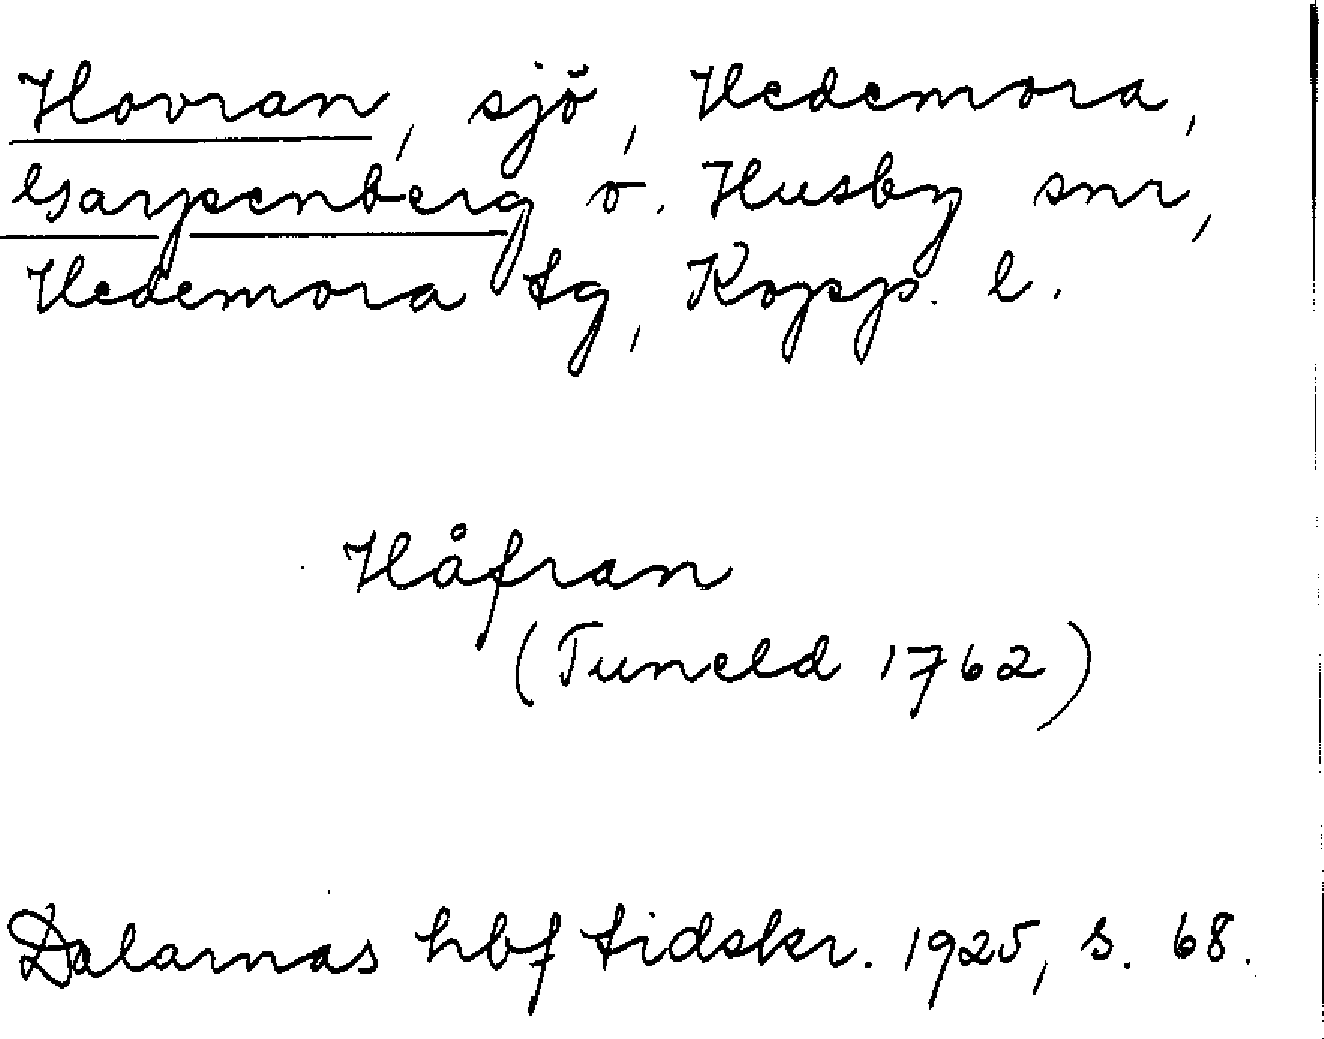 Hovran, sjö, Hedemora,
Garpenberg o. Husby snr,
Hedemora tg, Kopp. l.
Håfran
(Tuneld 1762)
Dalarnas hbf tidskr. 1925, s. 68.